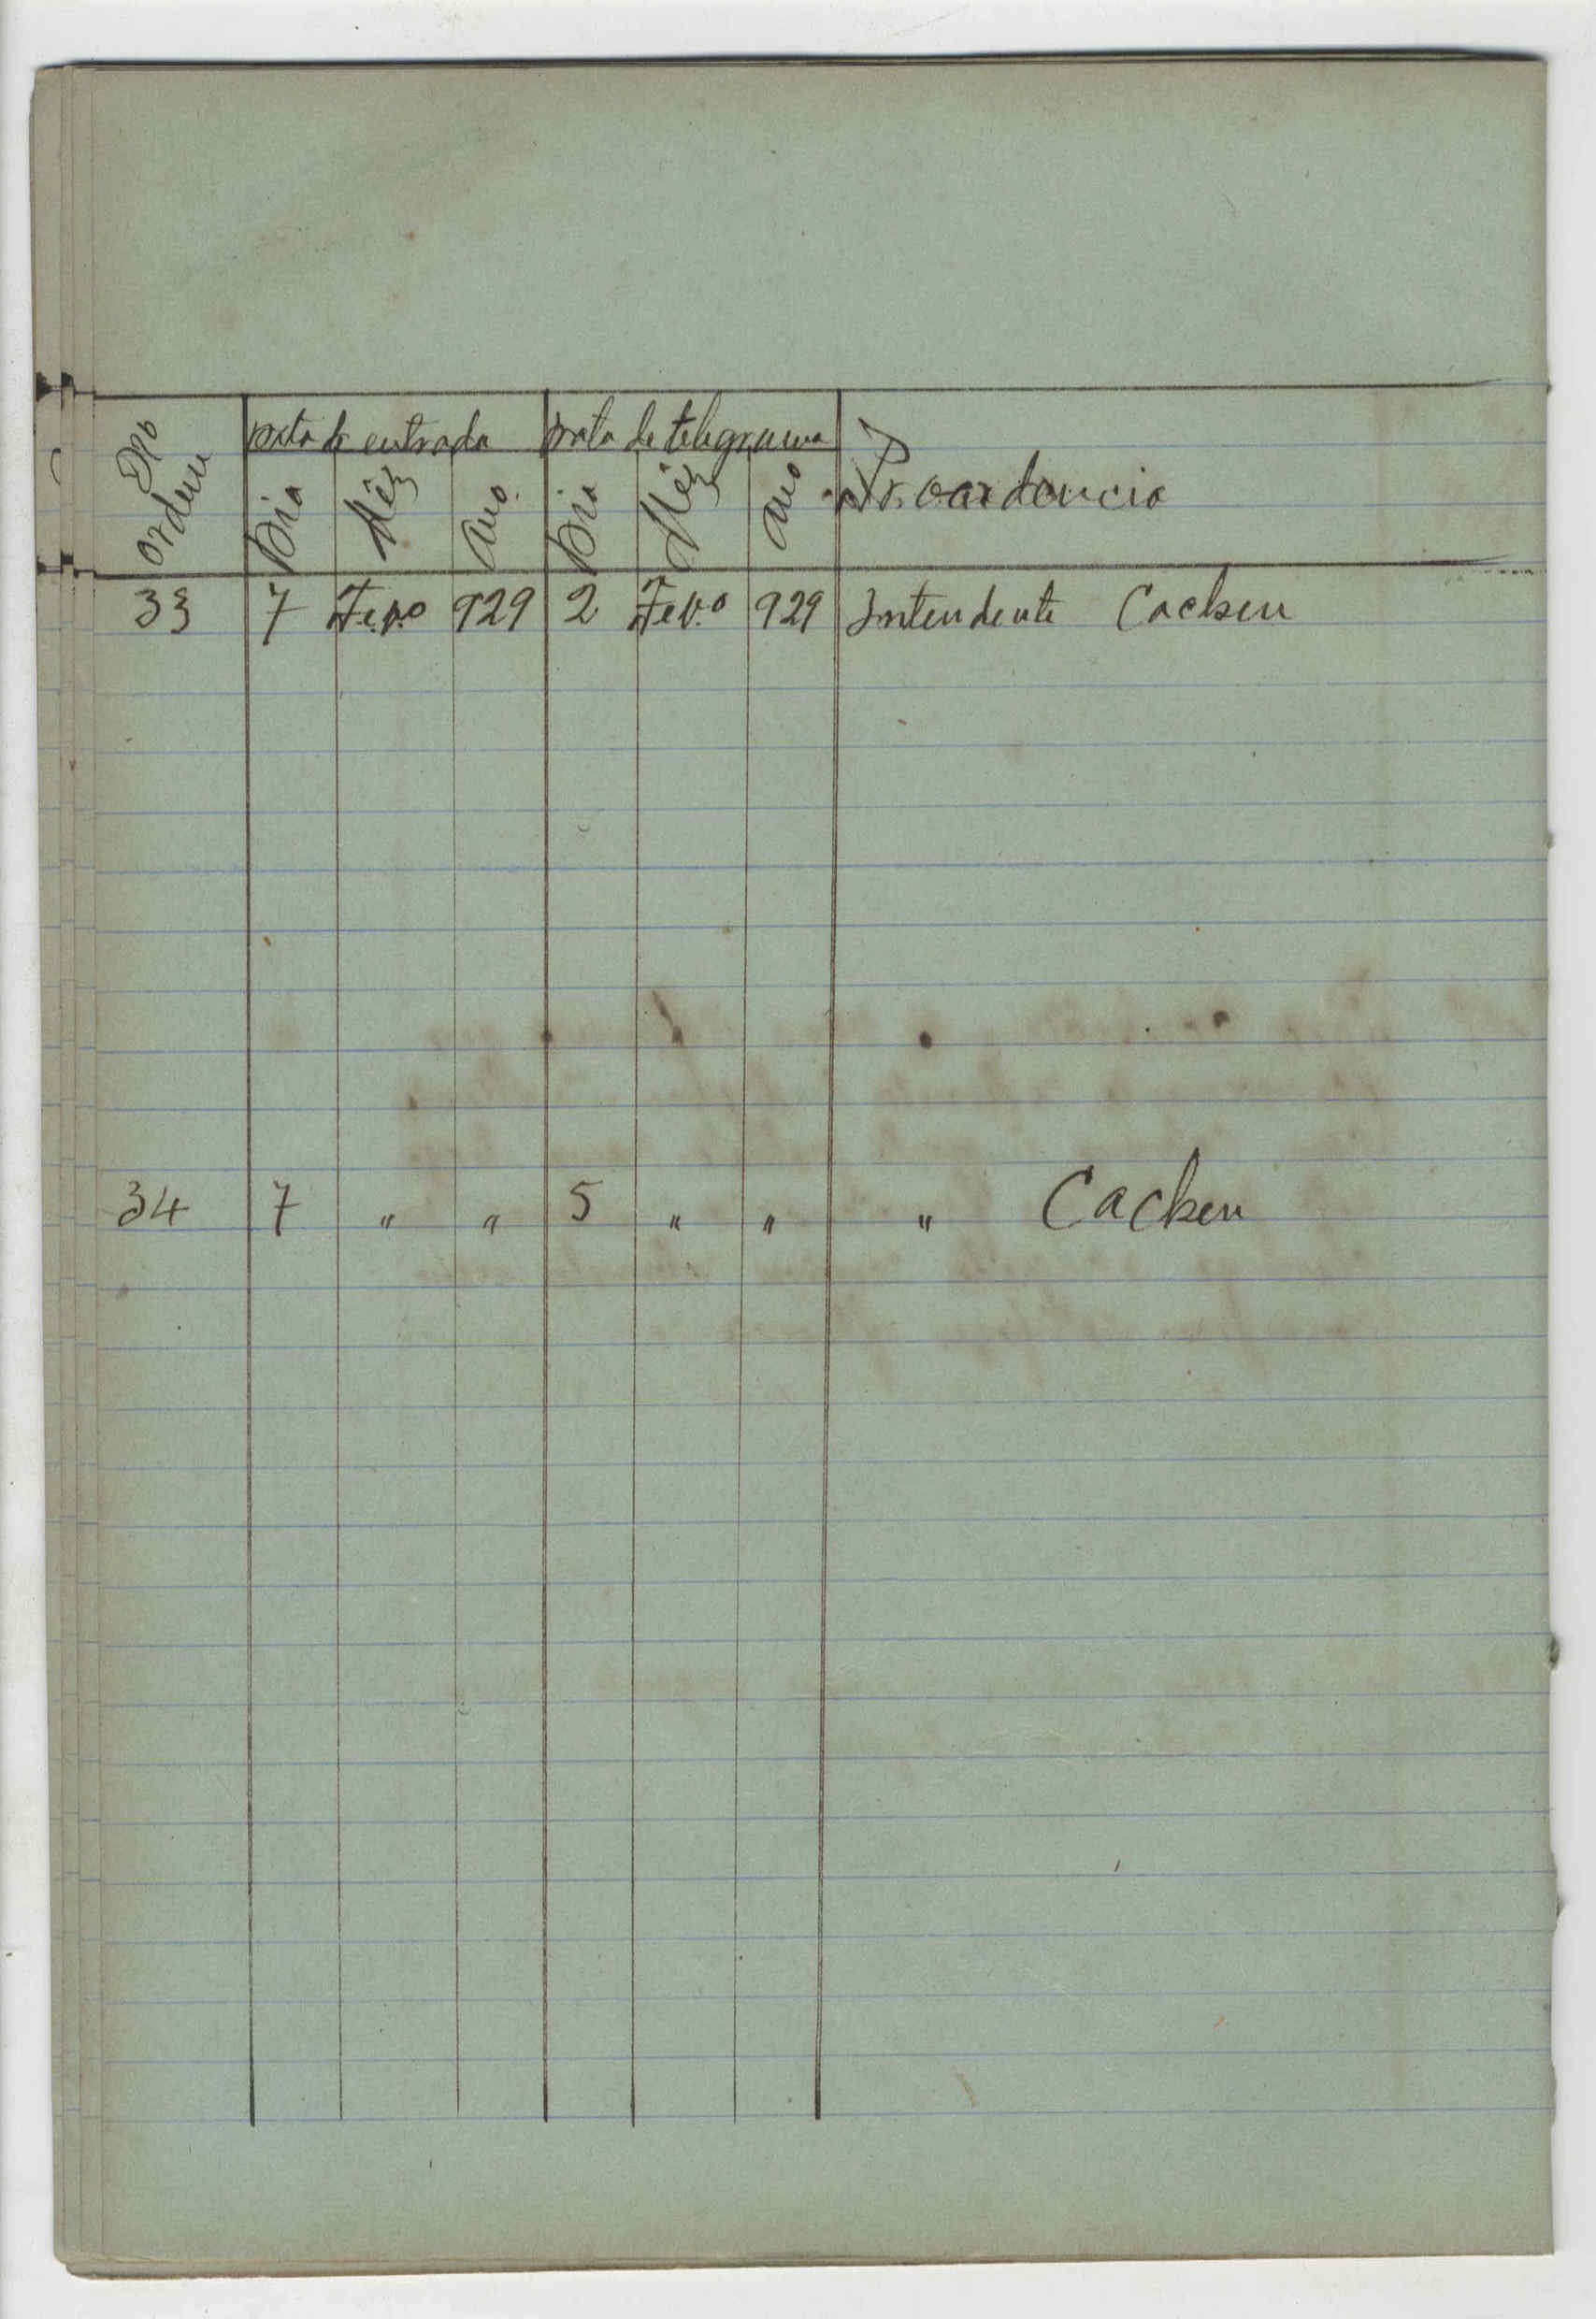 Nº ordem
Data de entrada Data de telegrama
Dia Mêz Ano Dia Mêz Ano Procedencia
33 7 Fev.o 929 2 Fev.o 929 Intendente Cacheu
34 7 " " 5 " " " Cacheu